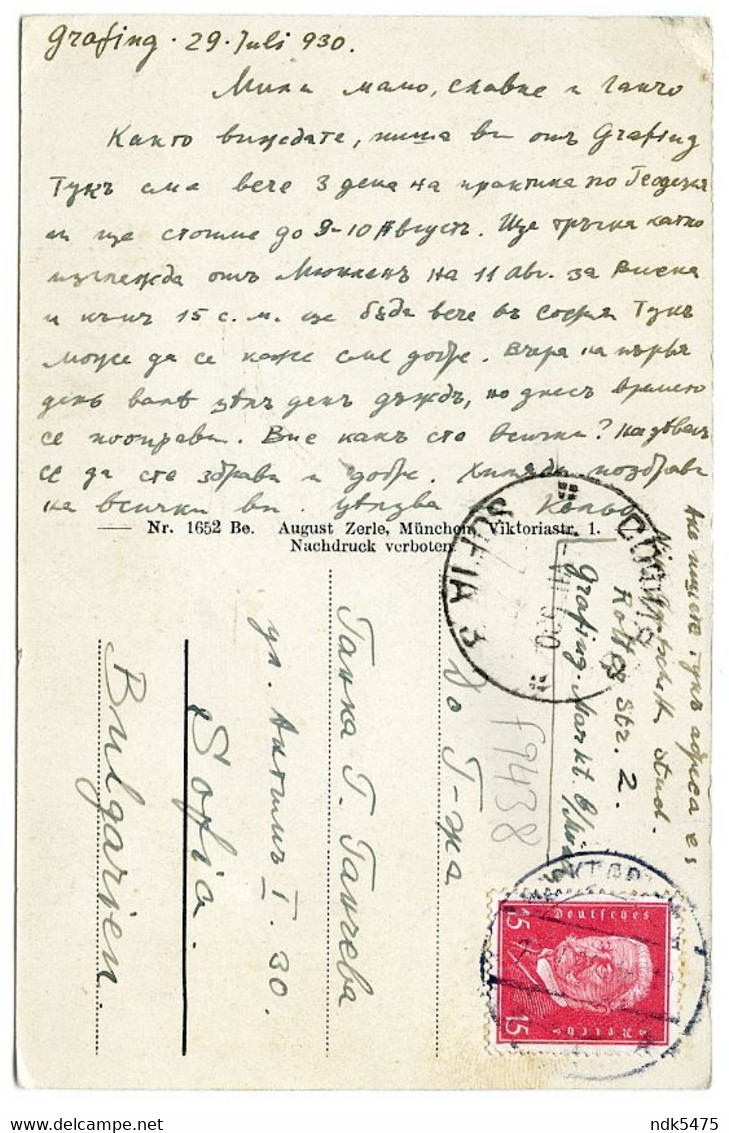 Grafing. 29. Juli 930.
Мили мамо, Славке и Ганчо
Както виждате, пиша ви отъ Grafing
Тукъ сме вече 3 дена на практика по Геодезия
и ще стоиме до 9-10 Августъ. Ще тръгна както
изглежда отъ Мюнхенъ на 11 Авг. за Виена
и къмъ 15 с. м. ще бѫда вече въ София Тукъ
може да се каже сме добре. Вчера на първия
день валѣ цѣлъ день дъждъ, но днесъ времето
се поправи. Вие какъ сте всички? Надѣвамъ
се да сте здрави и добре. Хиляди поздрави
на всички ви. цѣлува Кольо
Nr. 1652 Be. August Zerle, München, Viktoriastr. 1.
Nachdruck verboten.
Ако пишете тукъ адреса es
stud.
Rott Str. 2.
Grafing-Markt b/Mü
SOFIA 3
СОФИЯ
f9438
До Г-жа
Ганка Г. Ганчева
ул. Антимъ I. 30.
Sofia.
Bulgarien.
Deutsches
Reich
15
15
ndk5475